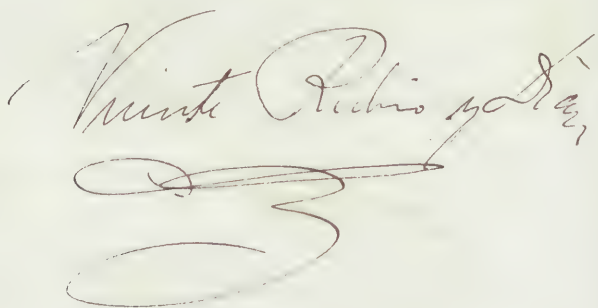 Vicente Rubio y Díaz